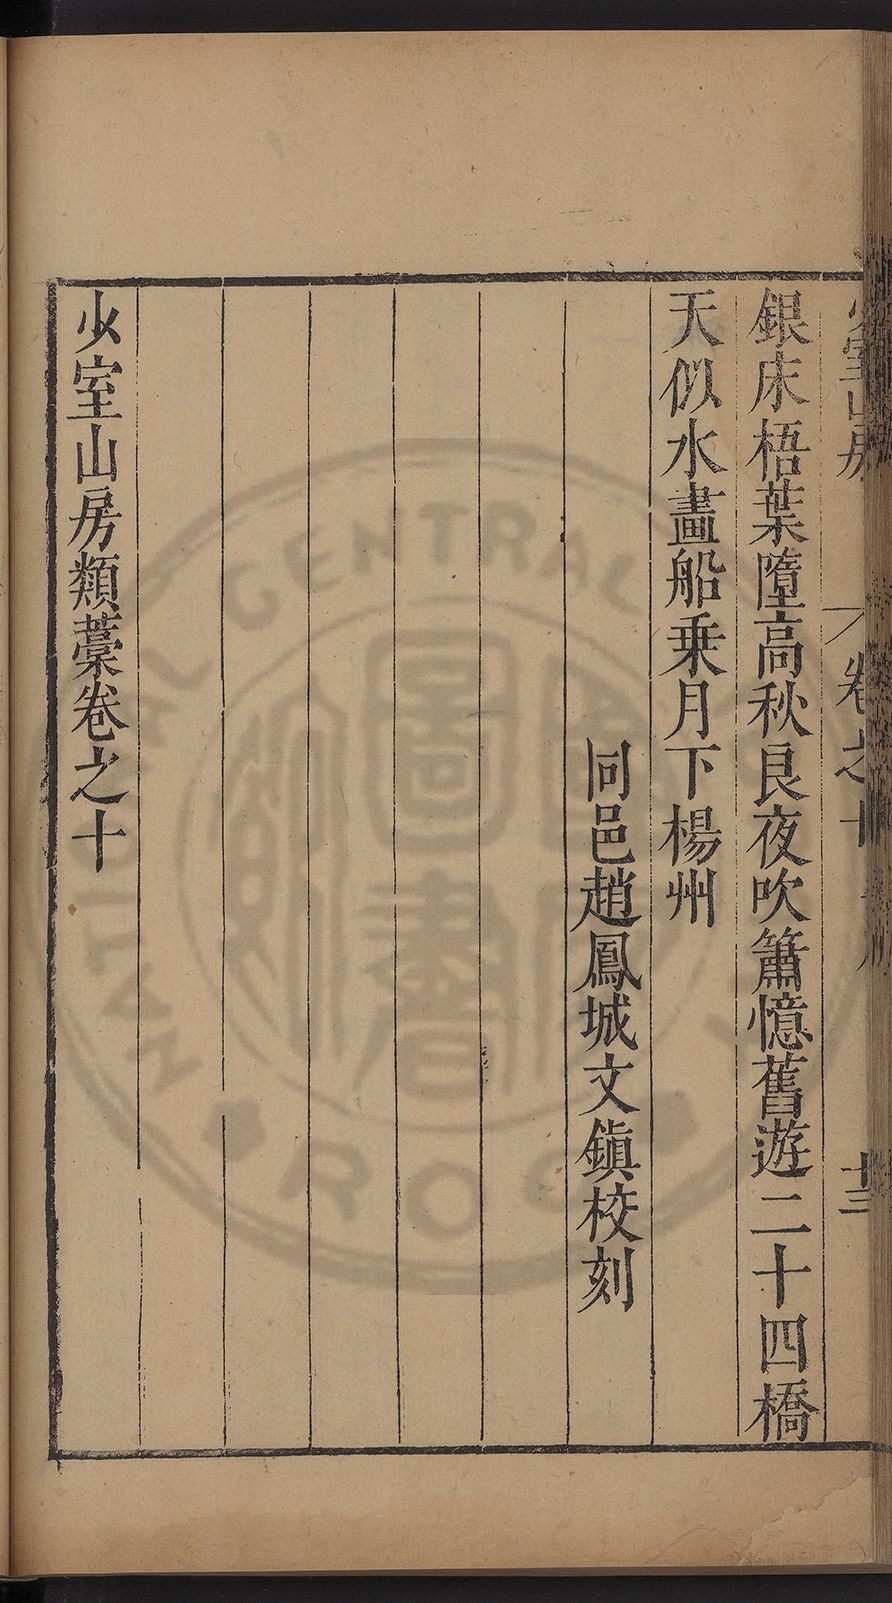 少室山房
卷之十
十三
銀床梧葉墮高秋良夜吹簫憶舊遊二十四橋
天似水畫船乗月下楊州
同邑趙鳳城文鎭校刻
少室山房類藳卷之十